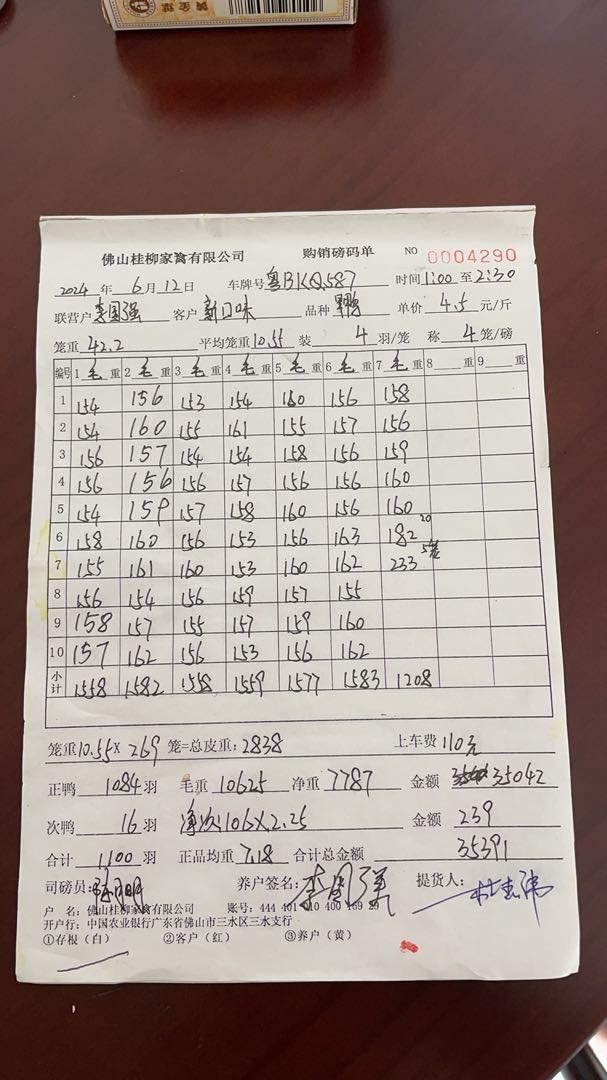 佛山桂柳家禽有限公司 购销磅码单 NO 0004290
2024 年 6 月 12 日 车牌号 粤BKQ587 时间 1:00 至 2:30
联营户 李国强 客户 新口味 品种 单价 4.5 元/斤
笼重 42.2 平均笼重 10.55 装 4 羽/笼 称 4 笼/磅
编号 1 毛 重 2 毛 重 3 毛 重 4 毛 重 5 毛 重 6 毛 重 7 毛 重 8 重 9 重
1 154 156 153 154 160 156 158
2 154 160 155 161 155 157 156
3 156 157 154 154 158 156 159
4 156 156 156 157 156 156 160
5 154 159 157 158 160 156 160
6 158 160 156 153 156 163 182 20
7 155 161 160 153 160 162 233 5笼
8 156 154 156 159 157 155
9 158 157 155 157 159 160
10 157 162 156 153 156 162
小计 1558 1582 1558 1559 1577 1583 1208
笼重 10.55 X 269 笼=总皮重: 2838 上车费 110元
正鸭 1084 羽 毛重 10625 净重 7787 金额 35042
次鸭 16 羽 净次 106X2.25 金额 239
合计 1100 羽 正品均重 7.18 合计总金额 35391
司磅员: 养户签名: 李国强 提货人:
户 名: 佛山桂柳家禽有限公司 账号: 444 401 010 400 169 29
开户行: 中国农业银行广东省佛山市三水区三水支行
①存根(白) ②客户(红) ③养户(黄)